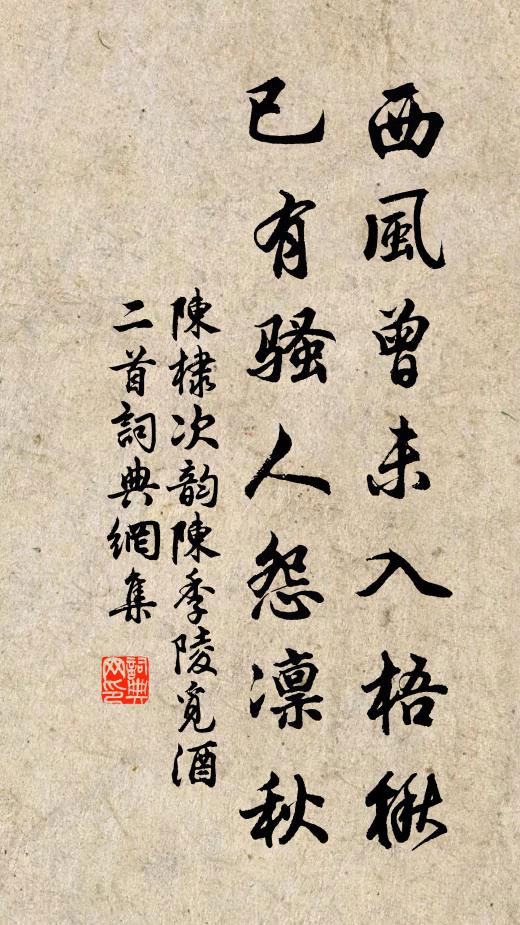 西風曾未入梧楸
已有騷人怨凛秋
陳棣次韵陳季陵覓酒
二首詞典網集
詞典網印